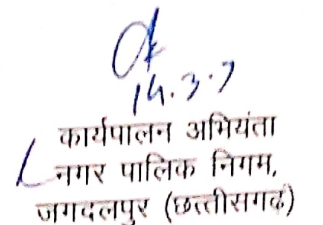 14.3.7
कार्यपालन अभियंता
नगर पालिक निगम,
जगदलपुर (छत्तीसगढ़)